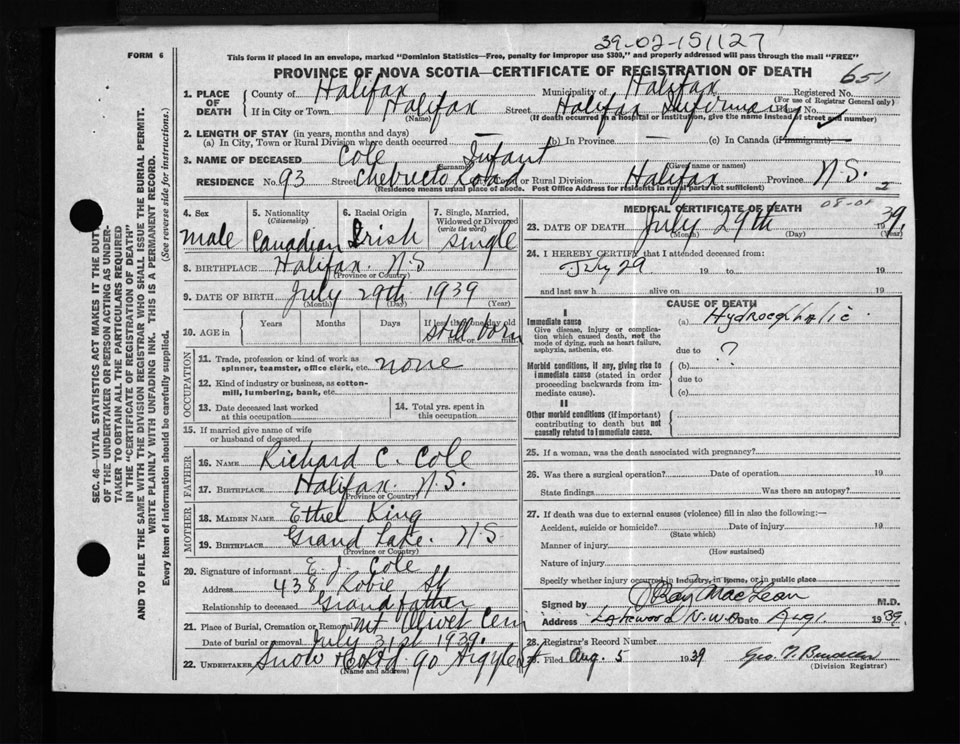 39-02-151127
FORM 6
This form if placed in an envelope, marked "Dominion Statistics—Free, penalty for improper use $300," and properly addressed will pass through the mail "FREE"
PROVINCE OF NOVA SCOTIA—CERTIFICATE OF REGISTRATION OF DEATH
651
1. PLACE OF DEATH
County of Halifax Municipality of Halifax Registered No.
(For use of Registrar General only)
If in City or Town Halifax Street Halifax Infirmary No. ✓
(Name) (If death occurred in a hospital or institution, give the name instead of street and number)
2. LENGTH OF STAY (in years, months and days)
(a) In City, Town or Rural Division where death occurred (b) In Province — (c) In Canada (if immigrant)
3. NAME OF DECEASED Cole Infant
(Surname) (Given name or names)
RESIDENCE No. 93 Street Chebucto Road or Rural Division Halifax Province N.S.
(Residence means usual place of abode. Post Office Address for residents in rural parts not sufficient)
2
4. Sex
male
5. Nationality
(Citizenship)
Canadian
6. Racial Origin
Irish
7. Single, Married, Widowed or Divorced
(write the word)
single
8. BIRTHPLACE Halifax. N.S
(Province or Country)
9. DATE OF BIRTH July 29th 1939
(Month) (Day) (Year)
10. AGE in
Years Months Days If less than one day old
Still born
OCCUPATION
11. Trade, profession or kind of work as spinner, teamster, office clerk, etc. none
12. Kind of industry or business, as cotton-mill, lumbering, bank, etc.
13. Date deceased last worked at this occupation
14. Total yrs. spent in this occupation
15. If married give name of wife or husband of deceased
FATHER
16. NAME Richard C. Cole
17. BIRTHPLACE Halifax. N.S.
(Province or Country)
MOTHER
18. MAIDEN NAME Ethel King
19. BIRTHPLACE Grand Lake. N.S
(Province or Country)
20. Signature of informant E. J. Cole
Address 438 Robie St
Relationship to deceased Grandfather
21. Place of Burial, Cremation or Removal Mt Olivet Cem
Date of burial or removal July 31st 1939.
22. UNDERTAKER Snow & Co Ltd 90 Argyle St
(Name and address)
MEDICAL CERTIFICATE OF DEATH
08-08
23. DATE OF DEATH July 29th 1939.
(Month) (Day) (Year)
24. I HEREBY CERTIFY that I attended deceased from:
July 29 19 to 19
and last saw h alive on 19
CAUSE OF DEATH
I
Immediate cause
Give disease, injury or complication which caused death, not the mode of dying, such as heart failure, asphyxia, asthenia, etc.
(a) Hydrocephalic
due to ?
Morbid conditions, if any, giving rise to immediate cause (stated in order proceeding backwards from immediate cause).
(b)
due to
(c)
II
Other morbid conditions (if important) contributing to death but not causally related to immediate cause.
25. If a woman, was the death associated with pregnancy?
26. Was there a surgical operation? Date of operation 19
State findings Was there an autopsy?
27. If death was due to external causes (violence) fill in also the following:—
Accident, suicide or homicide? Date of injury 19
(State which)
Manner of injury
(How sustained)
Nature of injury
Specify whether injury occurred in industry, in home, or in public place
Signed by J Ray MacLean M.D.
Address Date Aug 1. 1939.
28. Registrar's Record Number
29. Filed Aug. 5 1939
(Division Registrar)
SEC. 46—VITAL STATISTICS ACT MAKES IT THE DUTY
OF THE UNDERTAKER OR PERSON ACTING AS UNDER-
TAKER TO OBTAIN ALL THE PARTICULARS REQUIRED
IN THE "CERTIFICATE OF REGISTRATION OF DEATH"
AND TO FILE THE SAME WITH THE DIVISION REGISTRAR WHO SHALL ISSUE THE BURIAL PERMIT.
WRITE PLAINLY WITH UNFADING INK. THIS IS A PERMANENT RECORD.
Every item of information should be carefully supplied. (See reverse side for instructions.)